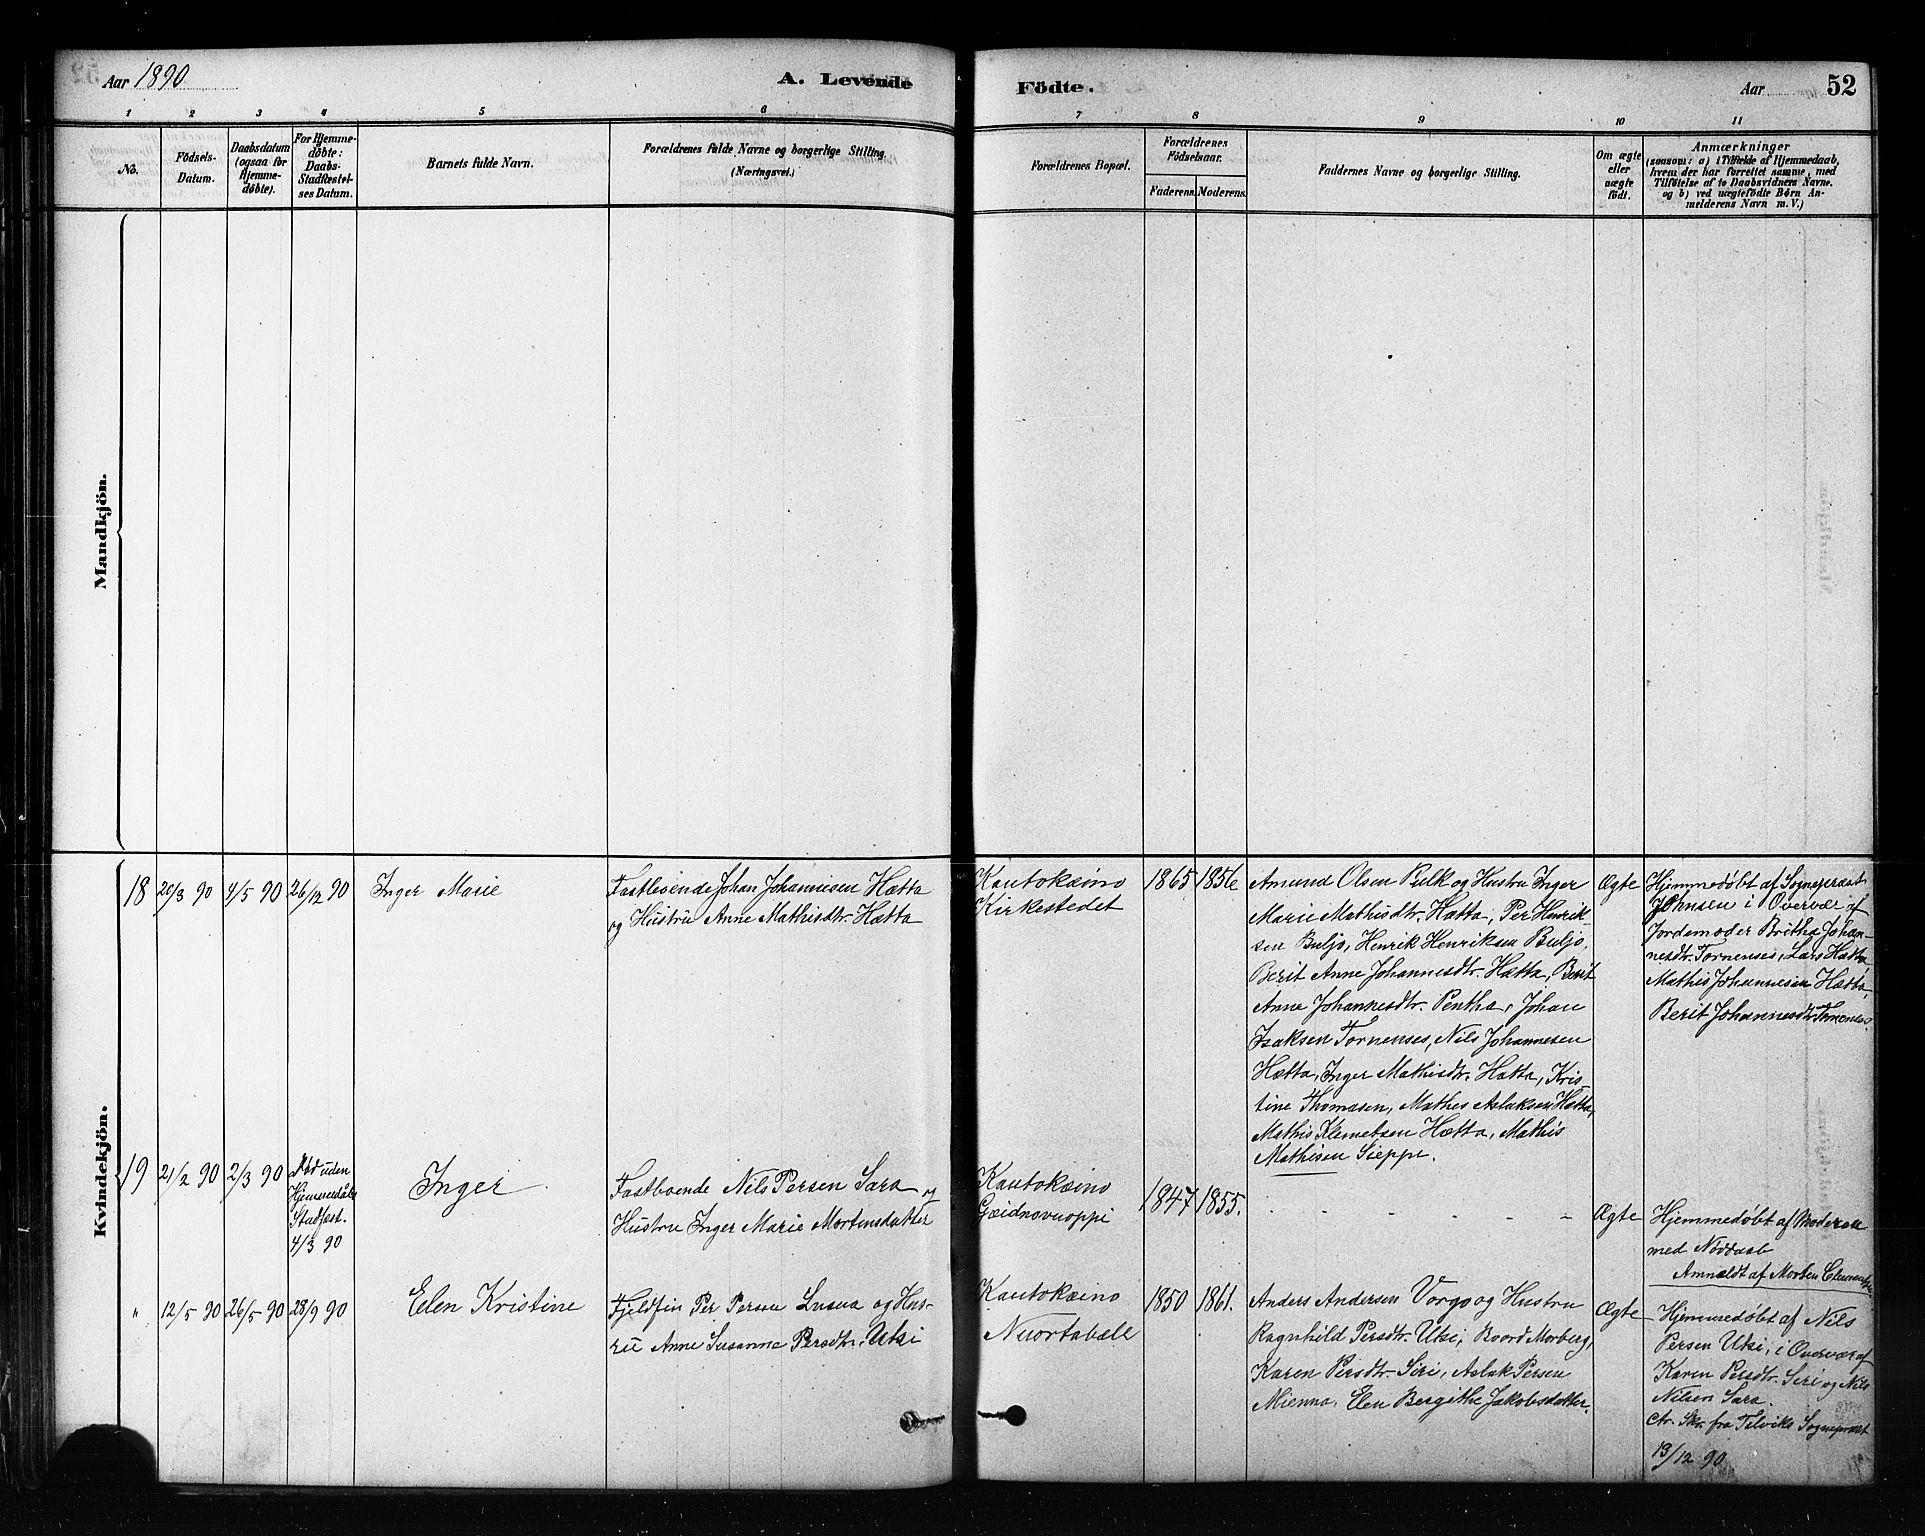 Aar 1890
A. Levende
Födte.
Aar
52
1 2 3 4 5 6 7 8 9 10 11
No.
Födsels-
Datum.
Daabsdatum
(ogsaa for
Hjemme-
døbte).
For Hjemme-
døbte:
Daabs-
Stadfæstel-
ses Datum.
Barnets fulde Navn.
Forældrenes fulde Navne og borgerlige Stilling.
(Næringsvei.)
Forældrenes Bopæl.
Forældrenes
Födselsaar.
Faderens. Moderens.
Faddernes Navne og borgerlige Stilling.
Om ægte
eller
uægte
født.
Anmærkninger
(saasom: a) i Tilfælde af Hjemmedaab,
hvem der har forrettet samme, med
Tilföielse af to Daabsvidners Navne.
og b) ved uægtefödte Börn An-
melderens Navn m. V.)
Mandkjön.
Kvindekjön.
18
20/3 90
4/5 90
26/12 90
Inger Marie
Fastboende Johan Johannesen Hætta
og Hustru Anne Mathisdtr. Hætta
Kautokæino
Kirkestedet
1865
1856
Amund Olsen Pulk og Hustru Inger
Marie Mathisdtr. Hætta, Per Henrik-
sen Buljo, Henrik Henriksen Buljo,
Berit Anne Johannesdtr. Hætta, Berit
Anne Johannesdtr. Pentha, Johan
Isaksen Tornenses, Nils Johannesen
Hætta, Inger Mathisdtr. Hætta, Kris-
tine Thomasen, Mathes Aslaksen Hætta,
Mathis Klemetsen Hætta, Mathis
Mathisen Sieppi.
Ægte
Hjemmedøbt af Sognepræst
Johnsen i Overvær af
Jordemoder Britha Johan-
nesdtr. Tornenses, Lars Hætta
Mathis Johannesen Hætta,
Berit Johannesdtr. Tornenses.
19
21/2 90
2/3 90
Død uden
Hjemmedåbs
Stadfæst.
4/3 90
Inger
Fastboende Nils Persen Sara og
Hustru Inger Marie Mortensdatter
Kautokæino
Gæidnovuoppi
1847
1855.
- - - - - -
Ægte
Hjemmedøbt af Moderen
med Nøddaab
Anmeldt af Morten
"
12/5 90
26/5 90
28/9 90
Elen Kristine
Fjeldfin Per Persen Lusua og Hus-
ru Anne Susanne Persdtr. Utsi
Kautokæino
Nuortabæle
1850
1861.
Anders Andersen Vorgo og Hustru
Ragnhild Persdtr. Utsi, Boord Morberg,
Karen Persdtr. Siri, Aslak Persen
Mienna, Elen Bergithe Jakobsdatter.
Ægte
Hjemmedøbt af Nils
Persen Utsi, i Overvær af
Karen Persdtr. Siri og Nils
Nilsen Sara.
Skr. fra Talviks Sognepræst
13/12 90